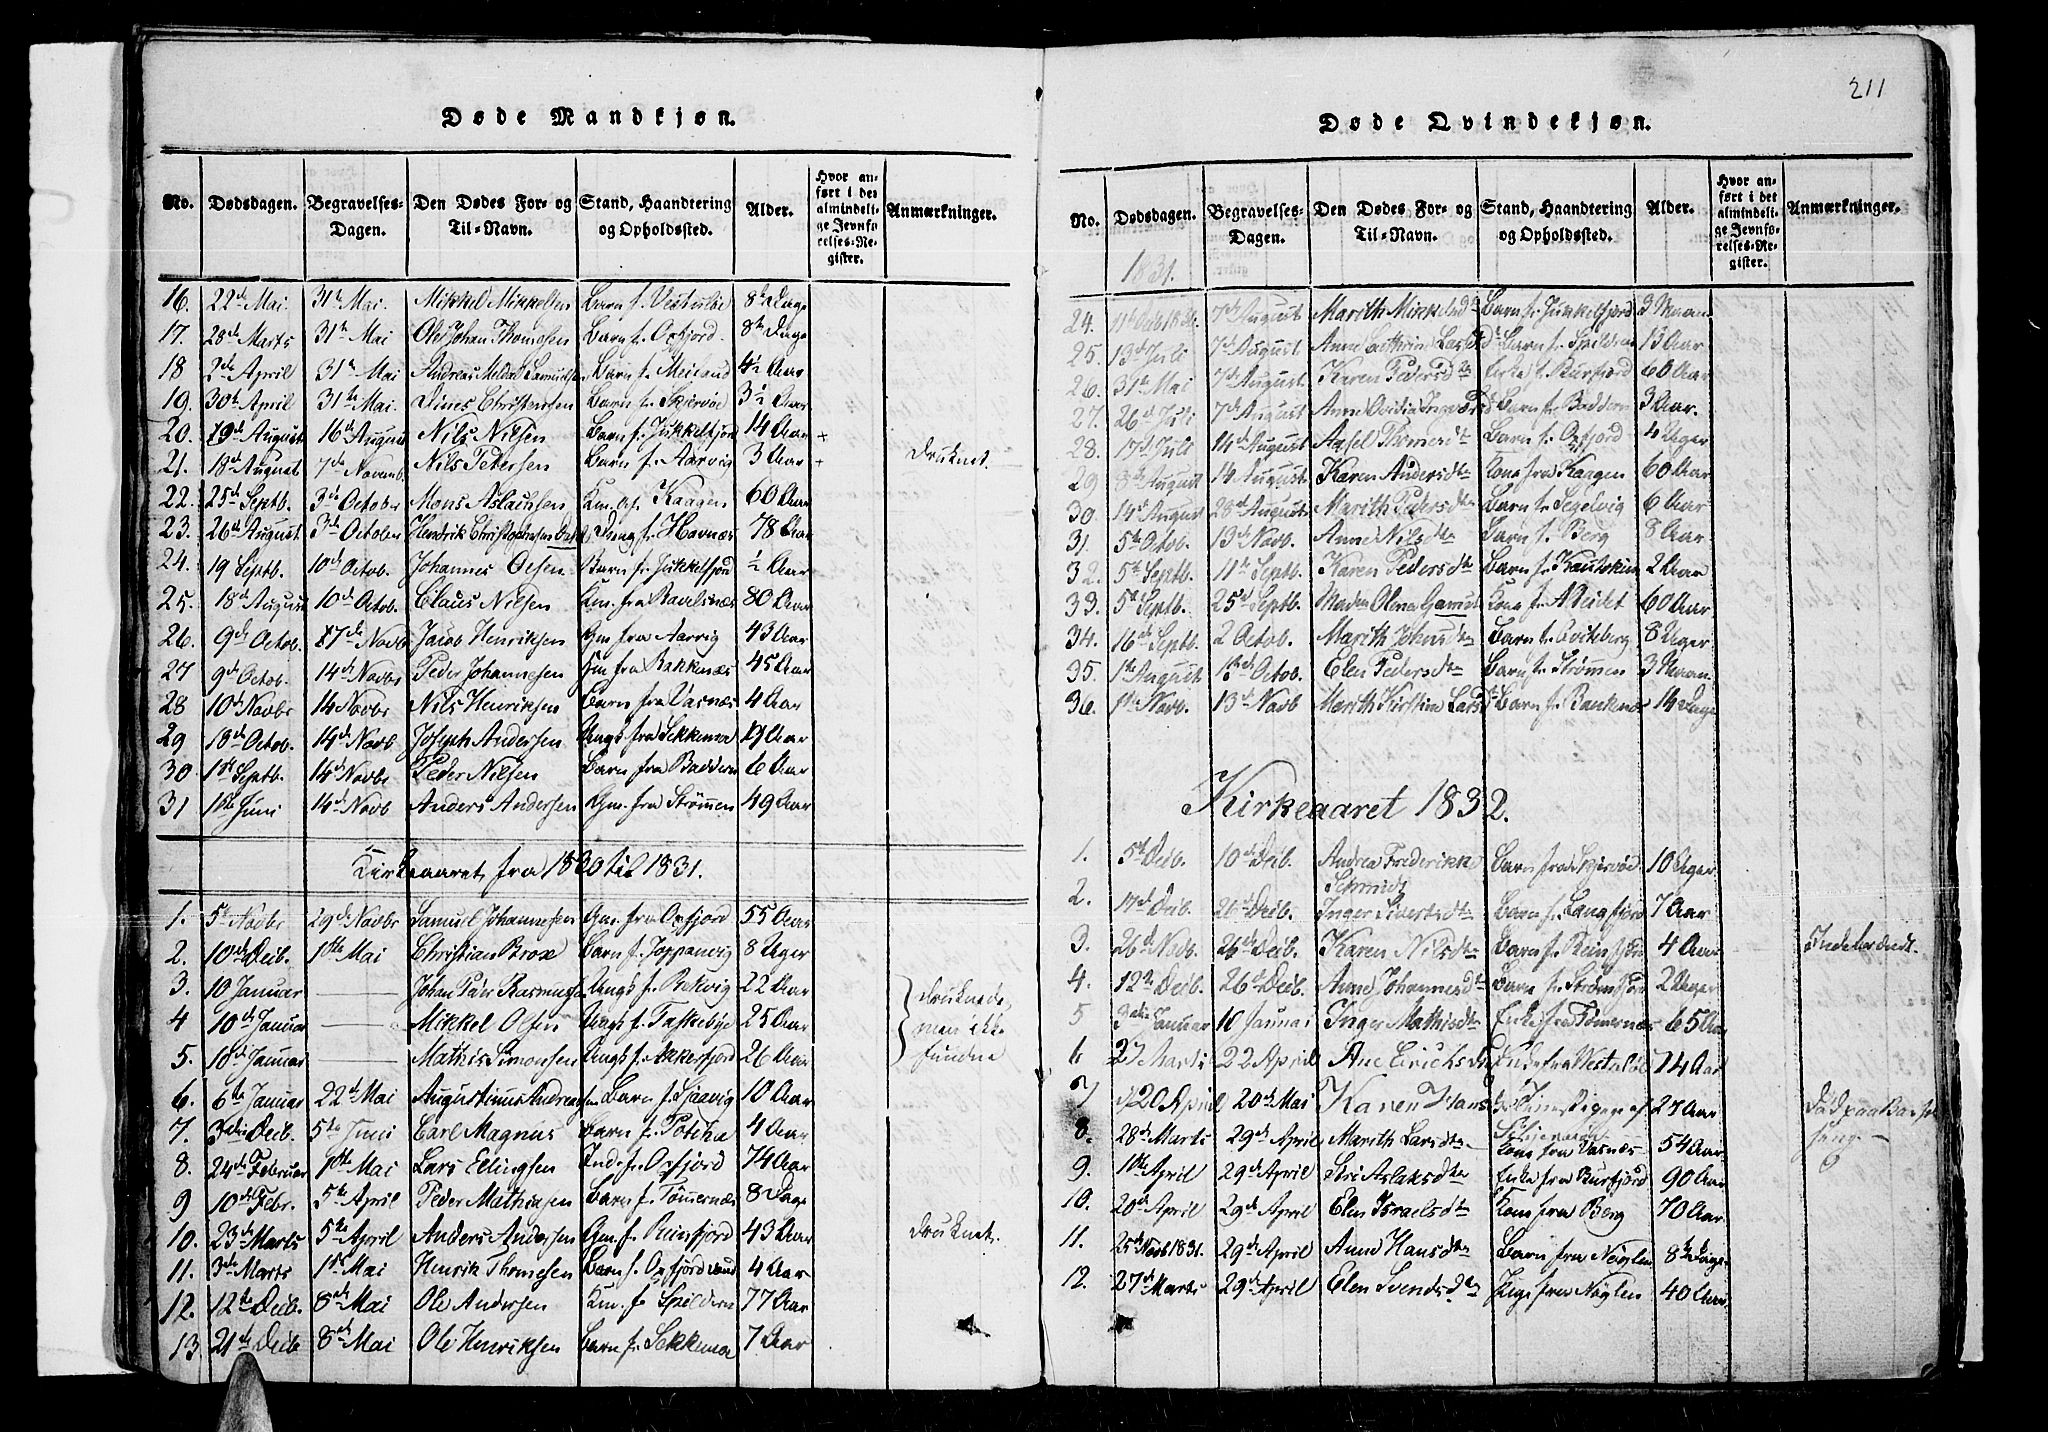 211
Døde Mandkjøn.
No. Dødsdagen. Begravelses-Dagen. Den Dødes For- og Til-Navn. Stand, Haandtering og Opholdssted. Alder. Hvor anført i det almindelige Jevnførelses-Register. Anmærkninger.
16. 22de Mai. 31te Mai. Mikkel Mikkelsen Barn f. 8te Dage
17. 28de Marts 31te Mai Ole Johan Thomesen Barn f. Oxfjord. 8te Dage
18 2de April 31te Mai Andreas Samuelsen Barn f. Meiland 4½ Aar
19. 30te April 31te Mai. Dines Christensen Barn f. Skjervøe 3½ Aar
20. 19de August 16de August Nils Nilsen Barn f. Jukkelfjord 14 Aar +
21. 18de August 7de Novemb. Nils Petersen Barn f. Aarvig 3 Aar + druknet.
22. 25de Septb. 3die October Mons Aslachsen Km. af Kaagen 60 Aar
23. 26de August 3de October Hendrik Christophersen f. Havnnæs 78 Aar
24. 19 Septb. 10de Octob. Johannes Olsen Barn fr. Jukkelfjord ½ Aar
25. 18de August 10de Octob. Claus Nilsen Km. fra Ravelsnæs 80 Aar
26. 9de Octob. 17de Novb Jacob Henriksen Gm. fra Aarvig 43 Aar
27 9de Octob. 14de Novbr Peder Johannesen Gm fra Bakkenæs 45 Aar
28 10de Novbr 14 Novbr Nils Henriksen Barn fra Vasnæs 4 Aar
29 18de Octob. 14de Novb Joseph Andersen Ungk fra Sekkemo 19 Aar
30 1ste Septb. 14de Novbr Peder Nilsen Barn fra Baddern 6 Aar
31 1ste Juni 14de Novb Anders Andersen Gm. fra Strømmen 49 Aar
Kirkeaaret fra 1830 til 1831.
1. 5te Novbr 29de Novbr Samuel Johannesen Gm. fra Oxfjord 55 Aar
2. 10de Decb. 1ste Mai Christian Brox Barn f. Toppenvig 8 Uger
3. 10 Januar — Johan Peder Rasmussen Ungk f. Rekvig 22 Aar druknede,
4 10de Januar — Mikkel Olsen Ungk f. Taskebye 25 Aar men ikke
5. 10de Januar — Mathis Simonsen Ungk f. Akkerfjord 26 Aar fundne
6. 6te Januar 22de Mai Augustinus Andreassen Barn f. Sjaavig 10 Aar
7. 3die Decb. 5te Juni Carl Magnus Barn f. Potcha 4 Aar
8. 24de Februar 1ste Mai Lars Ellingsen Ind. f. Oxfjord 74 Aar
9 10de Febr. 5te April Peder Mathiesen Barn f. Tømmernæs 8 Dage
10. 23de Marts 5te April Anders Andersen Gm. f. Reinfjord 43 Aar druknet.
11. 3die Marts 1ste Mai Henrik Thomesen Barn f. Oxfjord 4 Aar
12. 12te Decb. 8de Mai Ole Andersen Km. f. Spildern 77 Aar
13. 21de Decb 8de Mai Ole Henriksen Barn fr Sekkemo 7 Aar
Døde Qvindekjøn.
No. Dødsdagen. Begravelses-Dagen. Den Dødes For- og Til-Navn. Stand, Haandtering og Opholdssted. Alder. Hvor anført i det almindelige Jevnførelses-Register. Anmærkninger.
1831.
24. 11te Decb 1830. 7de August Marith Mikkelsdt Barn f. Jukkelfjord 3 Maan
25. 13de Juli 7de August Anne Cathrin Larsd Barn f. Spildren 13 Aar
26. 31te Mai 7de August Karen Pedersdtr Enke f. Burfjord 60 Aar
27. 26de Juli 7de August Anne Ovidia Barn f. Baddern 3 Aar.
28. 17de Juli 14de August Axsel Thomesdtr Barn f. Oxfjord 4 Uger
29 8de August 14 August Karen Andersdtr Kone fra Kaagen 60 Aar
30. 14de August 28de August Marith Pedersdtr Barn fr Segelvig 6 Aar
31. 5te Octob. 13de Novb. Anne Nilsdtr Barn f. Berg 8 Aar
32. 5te Septb. 11te Septb. Karen Pedersdtr Barn f. 2 Aar
33. 5te Septb. 25de Septb. Olena Kone fr. Alteidet 60 Aar
34. 16de Septb. 2 Octob. Marith Johnsdtr Barn f. Qviteberg 8 Uger
35. 1ste August Octob. Elen Pedersdtr Barn f. Strømen 3 Maan
36. 1ste Novb. 13de Novb Marith Kirstine Larsdt Barn f. Bankenæs 14 Dage
Kirkeaaret 1832.
1. 5te Decb. 10de Decb. Andrea Frederikke Barn fra Skjervøe 10 Uger
Schmidt
2. 17de Decb. 26de Decb. Inger Sivertsdtr Barn f. Langfjord 7 Aar
3. 26de Novb. 26de Decb. Karen Nilsdtr Barn f. Reinfjord 4 Aar
4. 12te Decb. 26de Decb. Anne Johannesdtr Barn f. Strømfjord 2 Uger
5 3die Januar 10 Januar Inger Mathisdtr Enke fra Tømernæs 65 Aar
6 27 Marts 22 April Ane Erichsdtr 74 Aar
7 20 April 20de Mai Karen Hans 27 Aar Død paa Barsel
Skjervøe seng
8. 28de Marts 29de April Marith Larsdtr Kone fra Vasnæs 54 Aar.
9. 1ste April 29de April Siri Aslaksdtr Enke fra Burfjord 90 Aar
10. 20de April 29de April Elen Israelsdtr Kone fra Berg 70 Aar.
11. 25de Novb 1831. 29de April Anne Hansdtr Barn fra Nøylen 8te Dage
12. 27de Marts 29de April Elen Svendsdtr Pige fra Nøylen 40 Aar